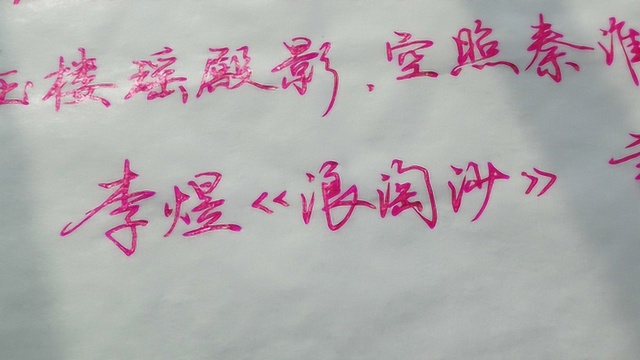 玉楼瑶殿影,空照秦淮
李煜《浪淘沙》